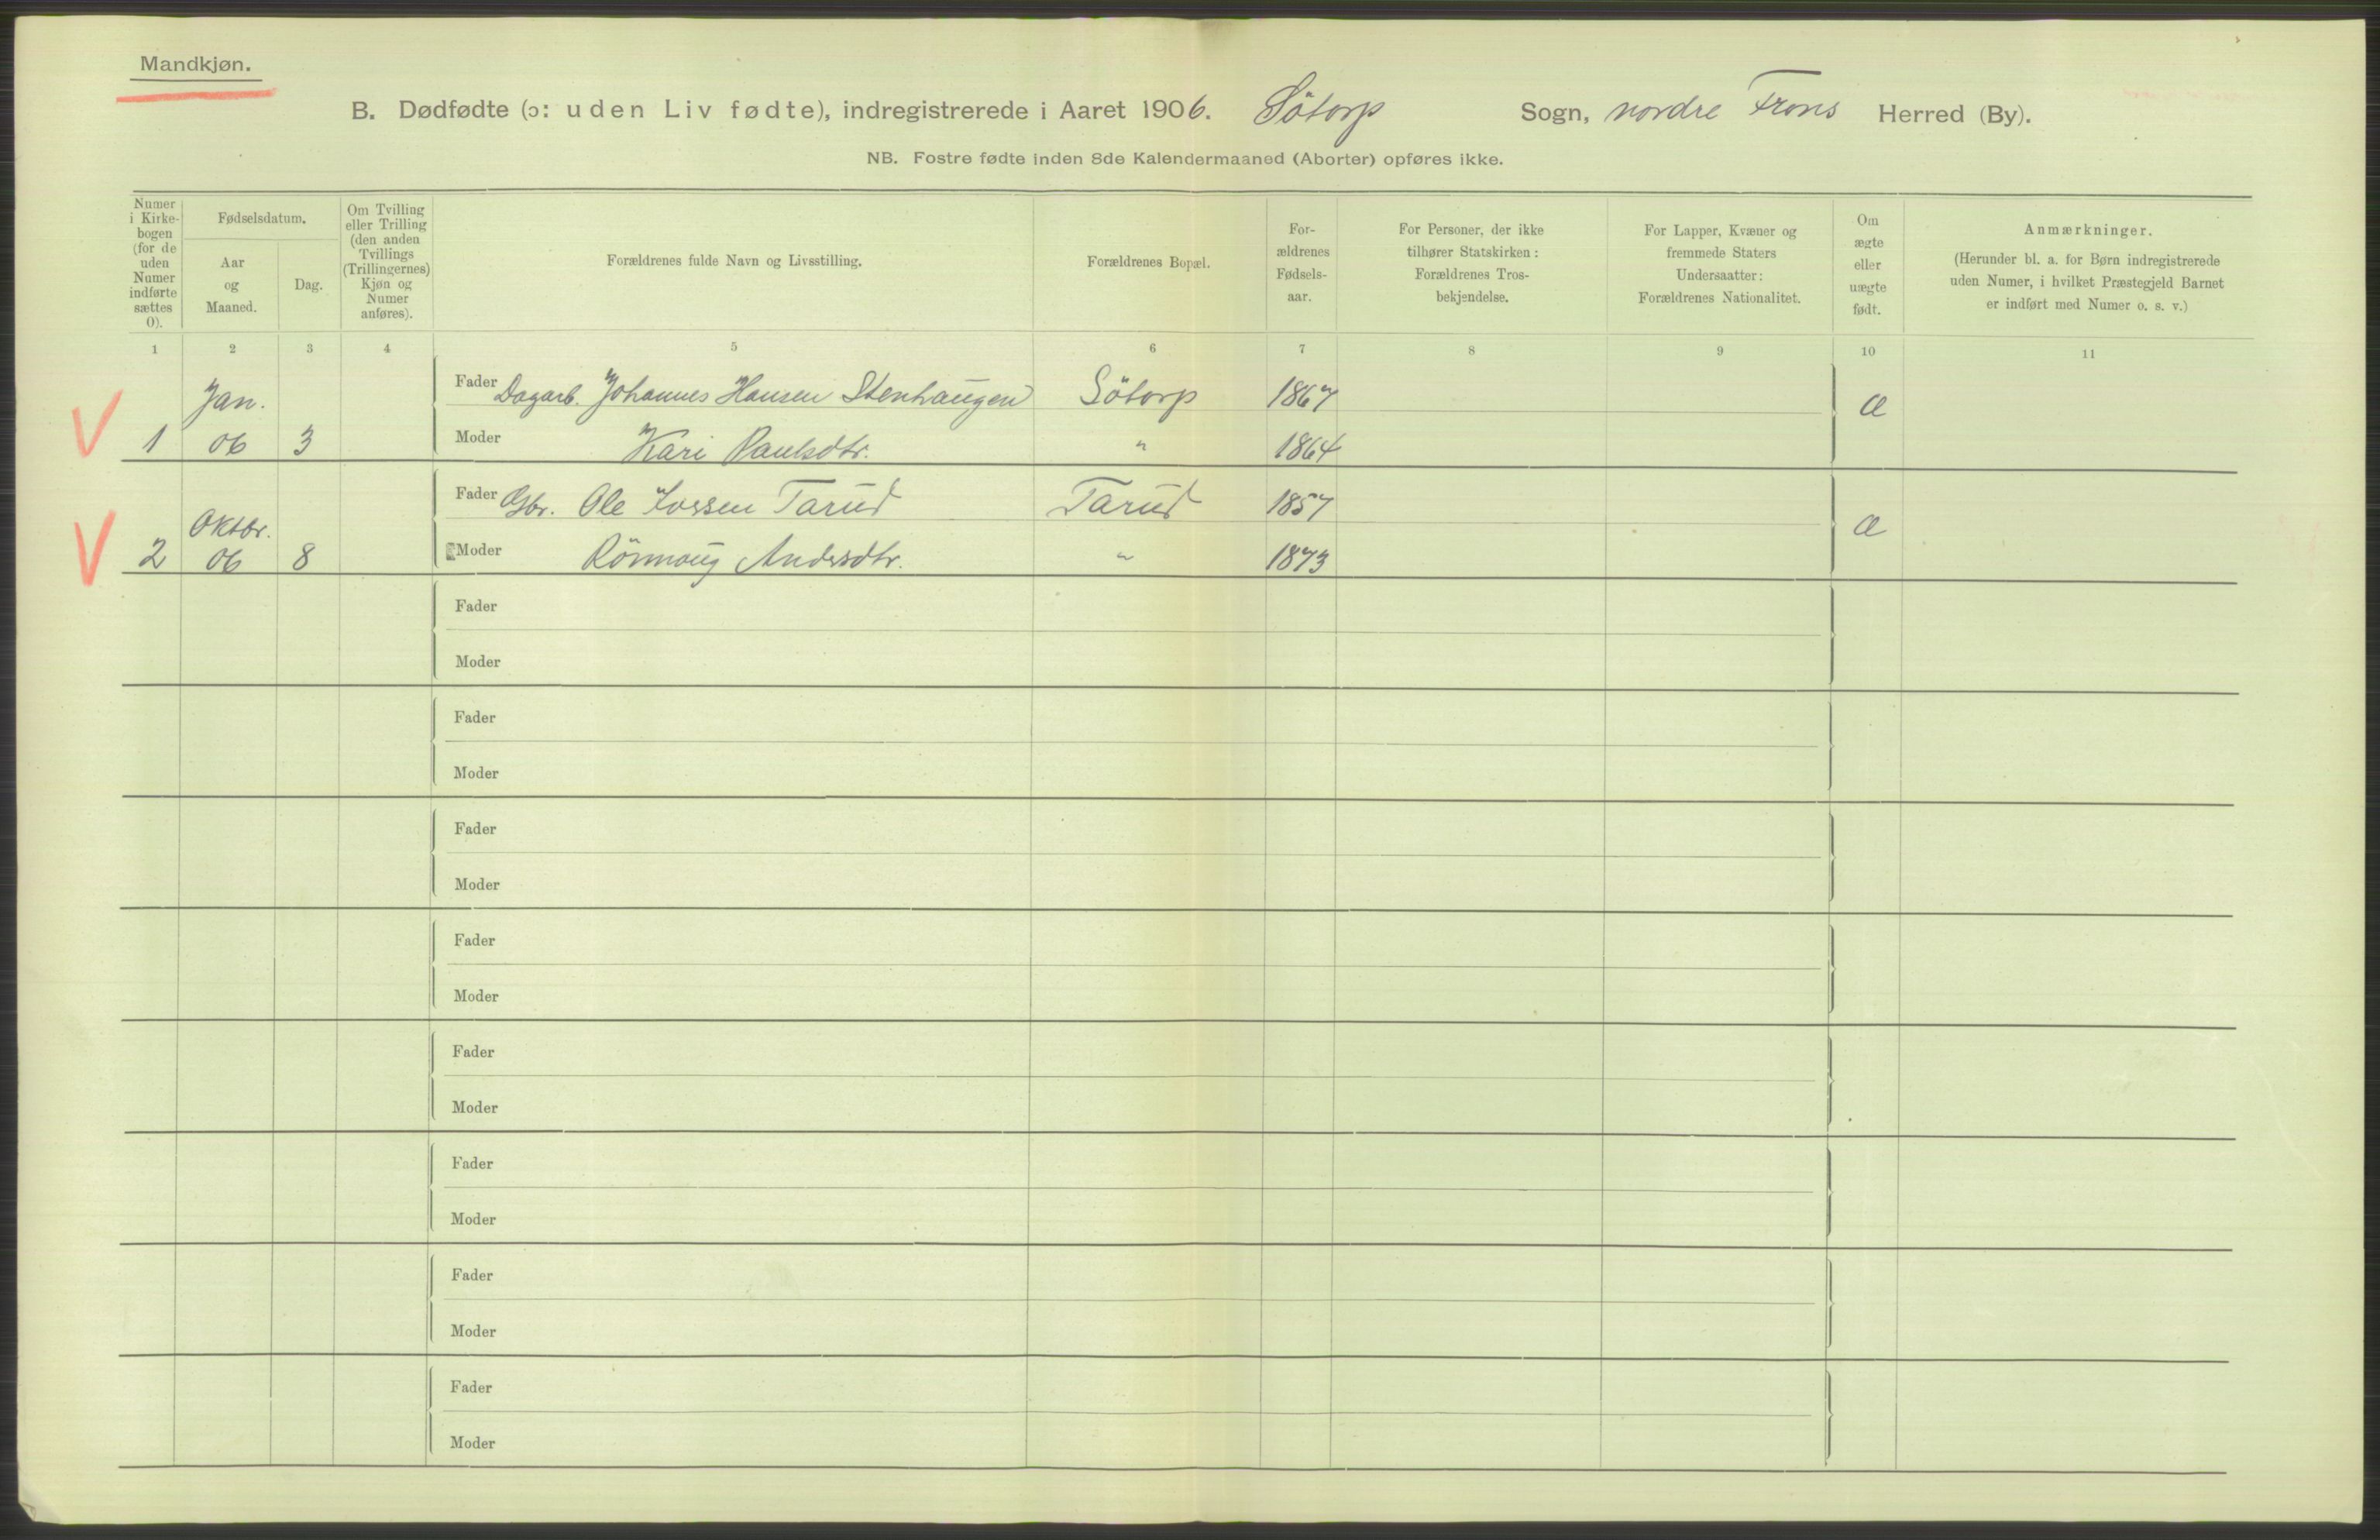 Mandkjøn.
B. Dødfødte (ɔ: uden Liv fødte), indregistrerede i Aaret 1906. Sötorp Sogn, nordre Frons Herred (By).
NB. Fostre fødte inden 8de Kalendermaaned (Aborter) opføres ikke.
Numer i Kirkebogen (for de uden Numer indførte sættes 0).
Fødselsdatum.
Aar og Maaned.
Dag.
Om Tvilling eller Trilling (den anden Tvillings (Trillingernes) Kjøn og Numer anføres).
Forældrenes fulde Navn og Livsstilling.
Forældrenes Bopæl.
For-ældrenes Fødsels-aar.
For Personer, der ikke tilhører Statskirken: Forældrenes Tros-bekjendelse.
For Lapper, Kvæner og fremmede Staters Undersaatter: Forældrenes Nationalitet.
Om ægte eller uægte født.
Anmærkninger.
(Herunder bl. a. for Børn indregistrerede uden Numer, i hvilket Præstegjeld Barnet er indført med Numer o. s. v.)
1 2 3 4 5 6 7 8 9 10 11
Jan. Fader Dagarb. Johannes Hansen Stenhaugen Sötorp 1867 Æ
V 1 06 3 Moder Kari Paulsdtr. " 1864
Oktbr. Fader Gbr. Ole Iversen Tarud Tarud 1857 Æ
V 2 06 8 Moder Rönnaug Andersdtr. " 1873
Fader
Moder
Fader
Moder
Fader
Moder
Fader
Moder
Fader
Moder
Fader
Moder
Fader
Moder
Fader
Moder